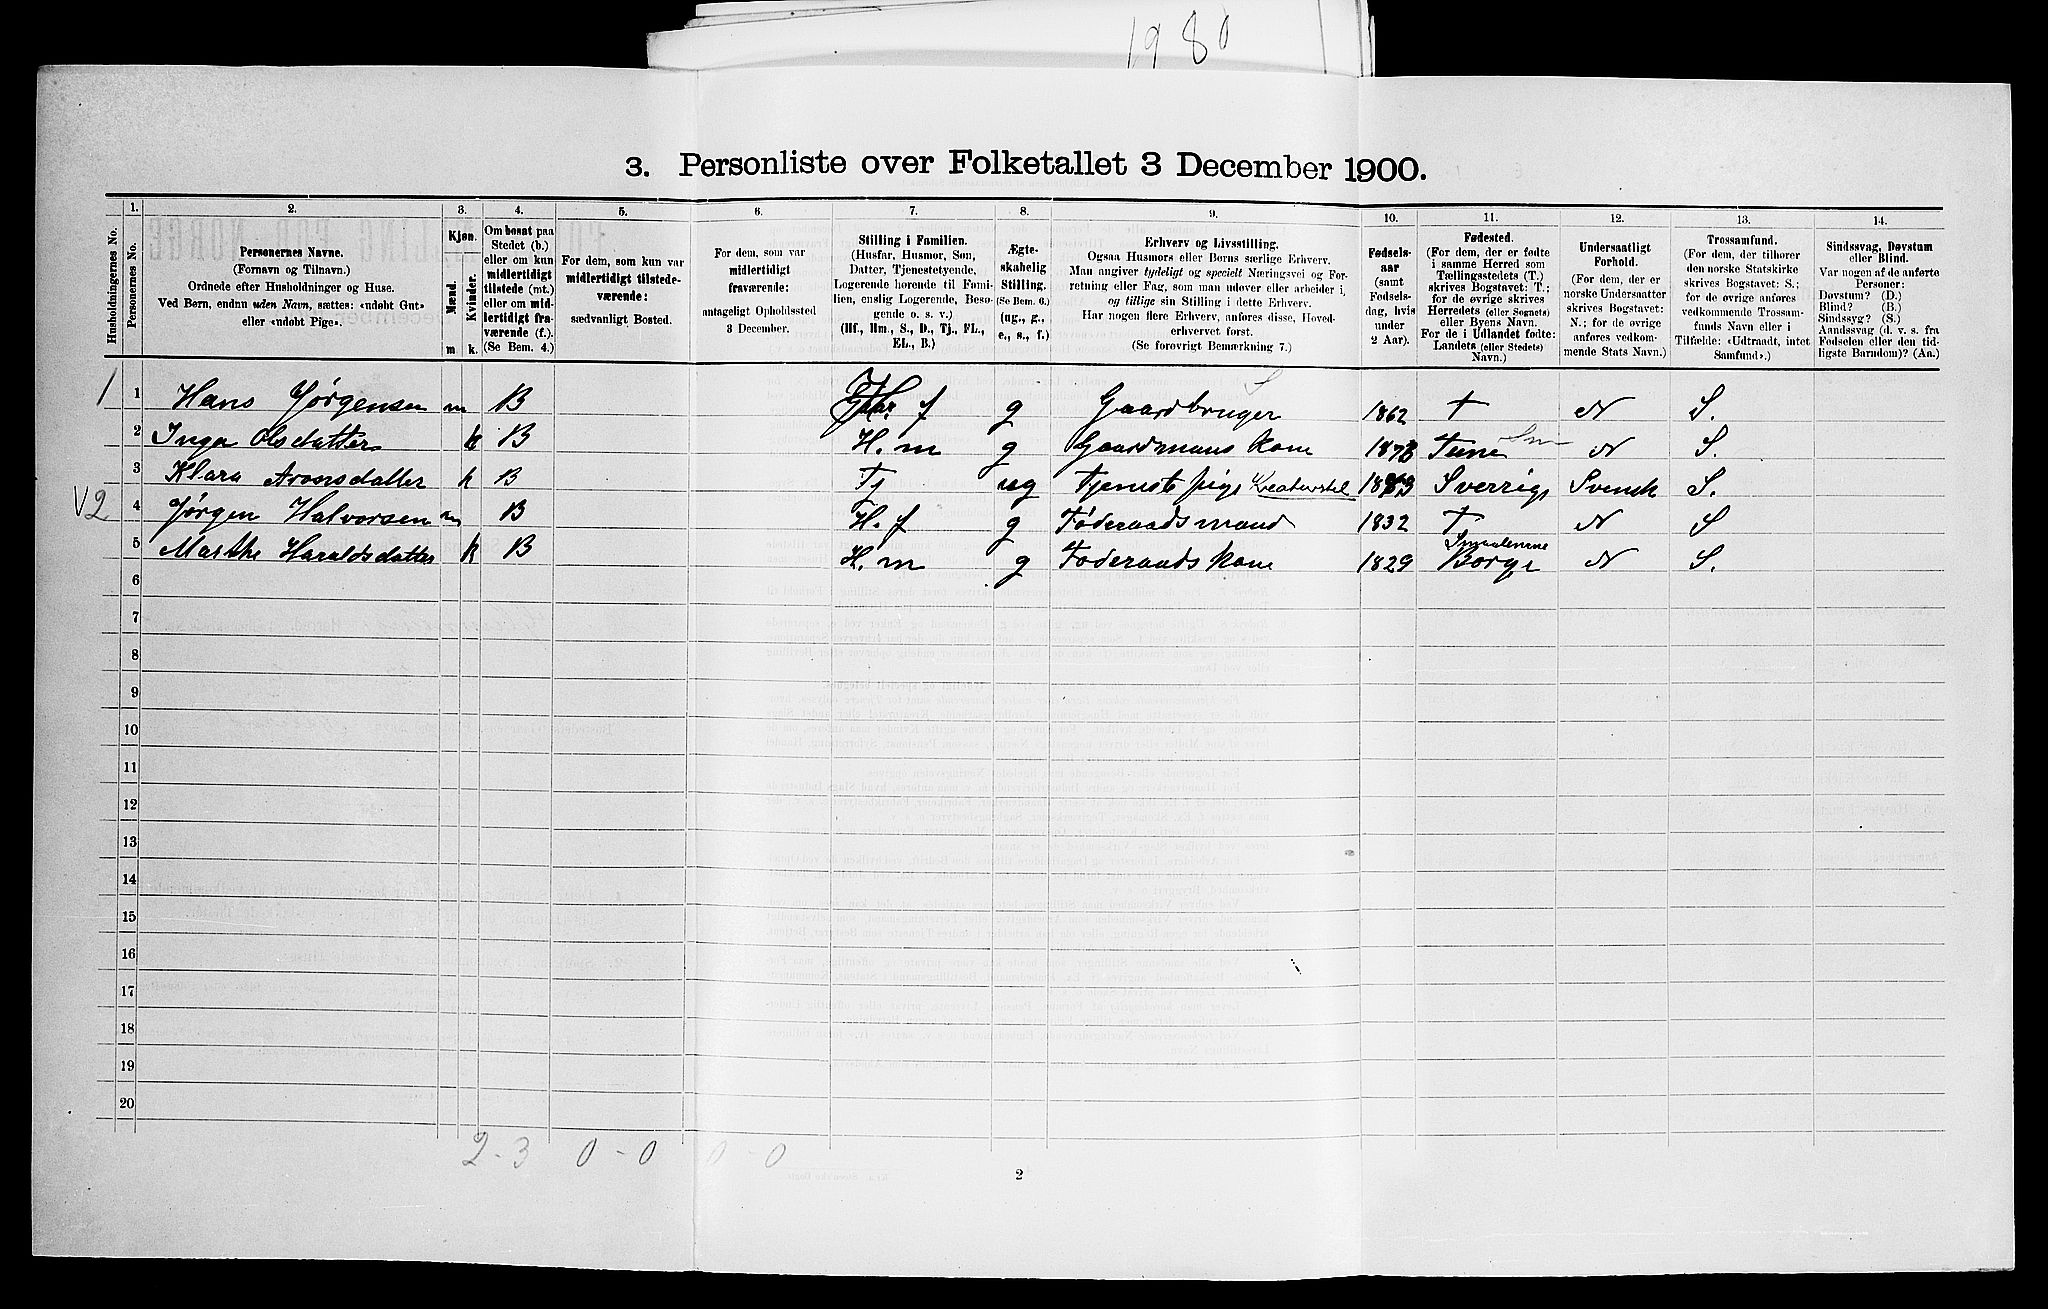 1980
3. Personliste over Folketallet 3 December 1900.
1. 2. 3. 4. 5. 6. 7. 8. 9. 10. 11. 12. 13. 14.
Husholdningernes No.
Personernes No.
Personernes Navne.
(Fornavn og Tilnavn.)
Ordnede efter Husholdninger og Huse.
Ved Børn, endnu uden Navn, sættes: «udøbt Gut»
eller «udøbt Pige».
Kjøn.
Mænd.
Kvinder.
m k.
Om bosat paa
Stedet (b.)
eller om kun
midlertidigt
tilstede (mt.)
eller om mid-
lertidigt fra-
værende (f.).
(Se Bem. 4.)
For dem, som kun var
midlertidigt tilstede-
værende:
sædvanligt Bosted.
For dem, som var
midlertidigt
fraværende:
antageligt Opholdssted
3 December.
Stilling i Familien.
(Husfar, Husmor, Søn,
Datter, Tjenestetyende,
Logerende hørende til Fami-
lien, enslig Logerende, Besø-
gende o. s. v.)
(Hf., Hm., S., D., Tj., FL.,
EL., B.)
Ægte-
skabelig
Stilling.
(Se Bem. 6.)
(ug., g.,
e., s., f.)
Erhverv og Livsstilling.
Ogsaa Husmors eller Børns særlige Erhverv.
Man angiver tydeligt og specielt Næringsvei og For-
retning eller Fag, som man udøver eller arbeider i,
og tillige sin Stilling i dette Erhverv.
Har nogen flere Erhverv, anføres disse, Hoved-
erhvervet først.
(Se forøvrigt Bemærkning 7.)
Fødsels-
aar
(samt
Fødsels-
dag, hvis
under
2 Aar).
Fødested.
(For dem, der er fødte
i samme Herred som
Tællingsstedets (T.)
skrives Bogstavet: T.;
for de øvrige skrives
Herredets (eller Sognets)
eller Byens Navn.
For de i Udlandet fødte:
Landets (eller Stedets)
Navn.)
Undersaatligt
Forhold.
(For dem, der er
norske Undersaatter
skrives Bogstavet:
N.; for de øvrige
anføres vedkom-
mende Stats Navn.)
Trossamfund.
(For dem, der tilhører
den norske Statskirke
skrives Bogstavet: S.;
for de øvrige anføres
vedkommende Trossam-
funds Navn eller i
Tilfælde: «Udtraadt, intet
Samfund».)
Sindssvag, Døvstum
eller Blind.
Var nogen af de anførte
Personer:
Døvstum? (D.)
Blind? (B.)
Sindssyg? (S.)
Aandssvag (d. v. s. fra
Fødselen eller den tid-
ligste Barndom)? (Aa.)
1 1 Hans Jørgensen m B f g Gaardbruger 1862 T N S.
2 Inga Olsdatter k B H. m g Gaardmans kone 187 Tune Sm N S.
3 Klara Aronsdatter k B Tj ug Tjeneste pige Kreaturstel 18 3 Sverrige Svensk S.
V2 4 Jørgen Halvorsen m B H. f g Føderaadsmand 1832 T N S
5 Marthe Haraldsdatter k B H. m g Føderaads kone 1829 Smaalenene Borge N S.
6
7
8
9
10
11
12
13
14
15
16
17
18
19
20
2 - 3 0 - 0 0 - 0
2